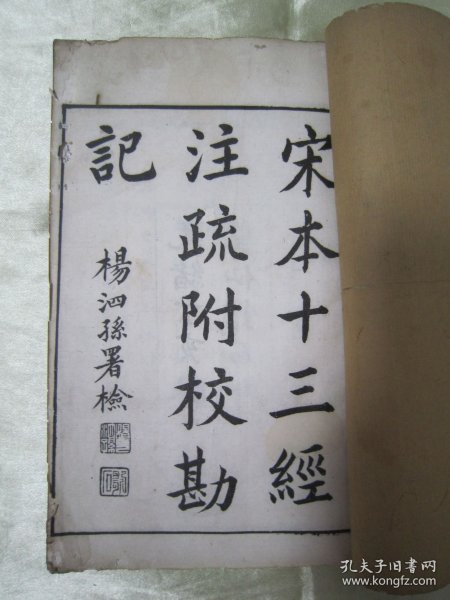 宋本十三經
注疏附校勘
記
楊泗孫署檢
孔夫子旧书网
www.kongfz.com